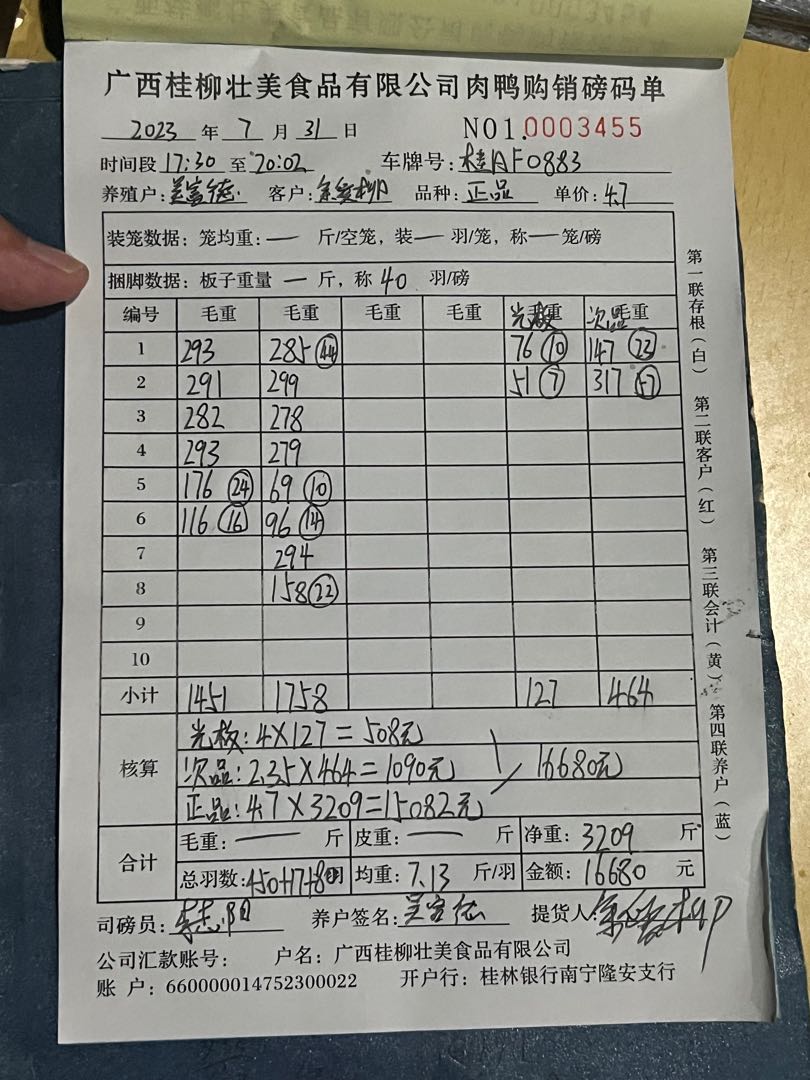 广西桂柳壮美食品有限公司肉鸭购销磅码单
2023 年 7 月 31 日 NO1.0003455
时间段 17:30 至 20:02 车牌号: 桂AF0883
养殖户: 吴富德 客户: 品种: 正品 单价: 4.7
装笼数据: 笼均重: — 斤/空笼, 装 — 羽/笼, 称 — 笼/磅
捆脚数据: 板子重量 — 斤, 称 40 羽/磅
编号 毛重 毛重 毛重 毛重 光板 毛重 次品 毛重
1 293 285 (44) 76 (10) 147 (23)
2 291 299 51 (7) 317 (57)
3 282 278
4 293 279
5 176 (24) 69 (10)
6 116 (16) 96 (14)
7 294
8 158 (22)
9
10
小计 1451 1758 127 464
核算
光板: 4×127=508元
次品: 2.35×464=1090元 16680元
正品: 4.7×3209=15082元
合计
毛重: — 斤 皮重: — 斤 净重: 3209 斤
总羽数: 450+17+80羽 均重: 7.13 斤/羽 金额: 16680 元
司磅员: 李志阳 养户签名: 吴富德 提货人:
公司汇款账号: 户名: 广西桂柳壮美食品有限公司
账 户: 660000014752300022 开户行: 桂林银行南宁隆安支行
第一联存根(白) 第二联客户(红) 第三联会计(黄) 第四联养户(蓝)